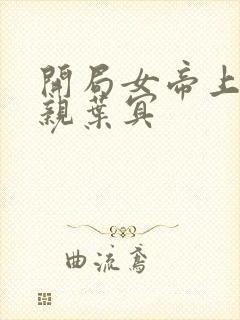 開局女帝上
親葉寘
曲流鳶